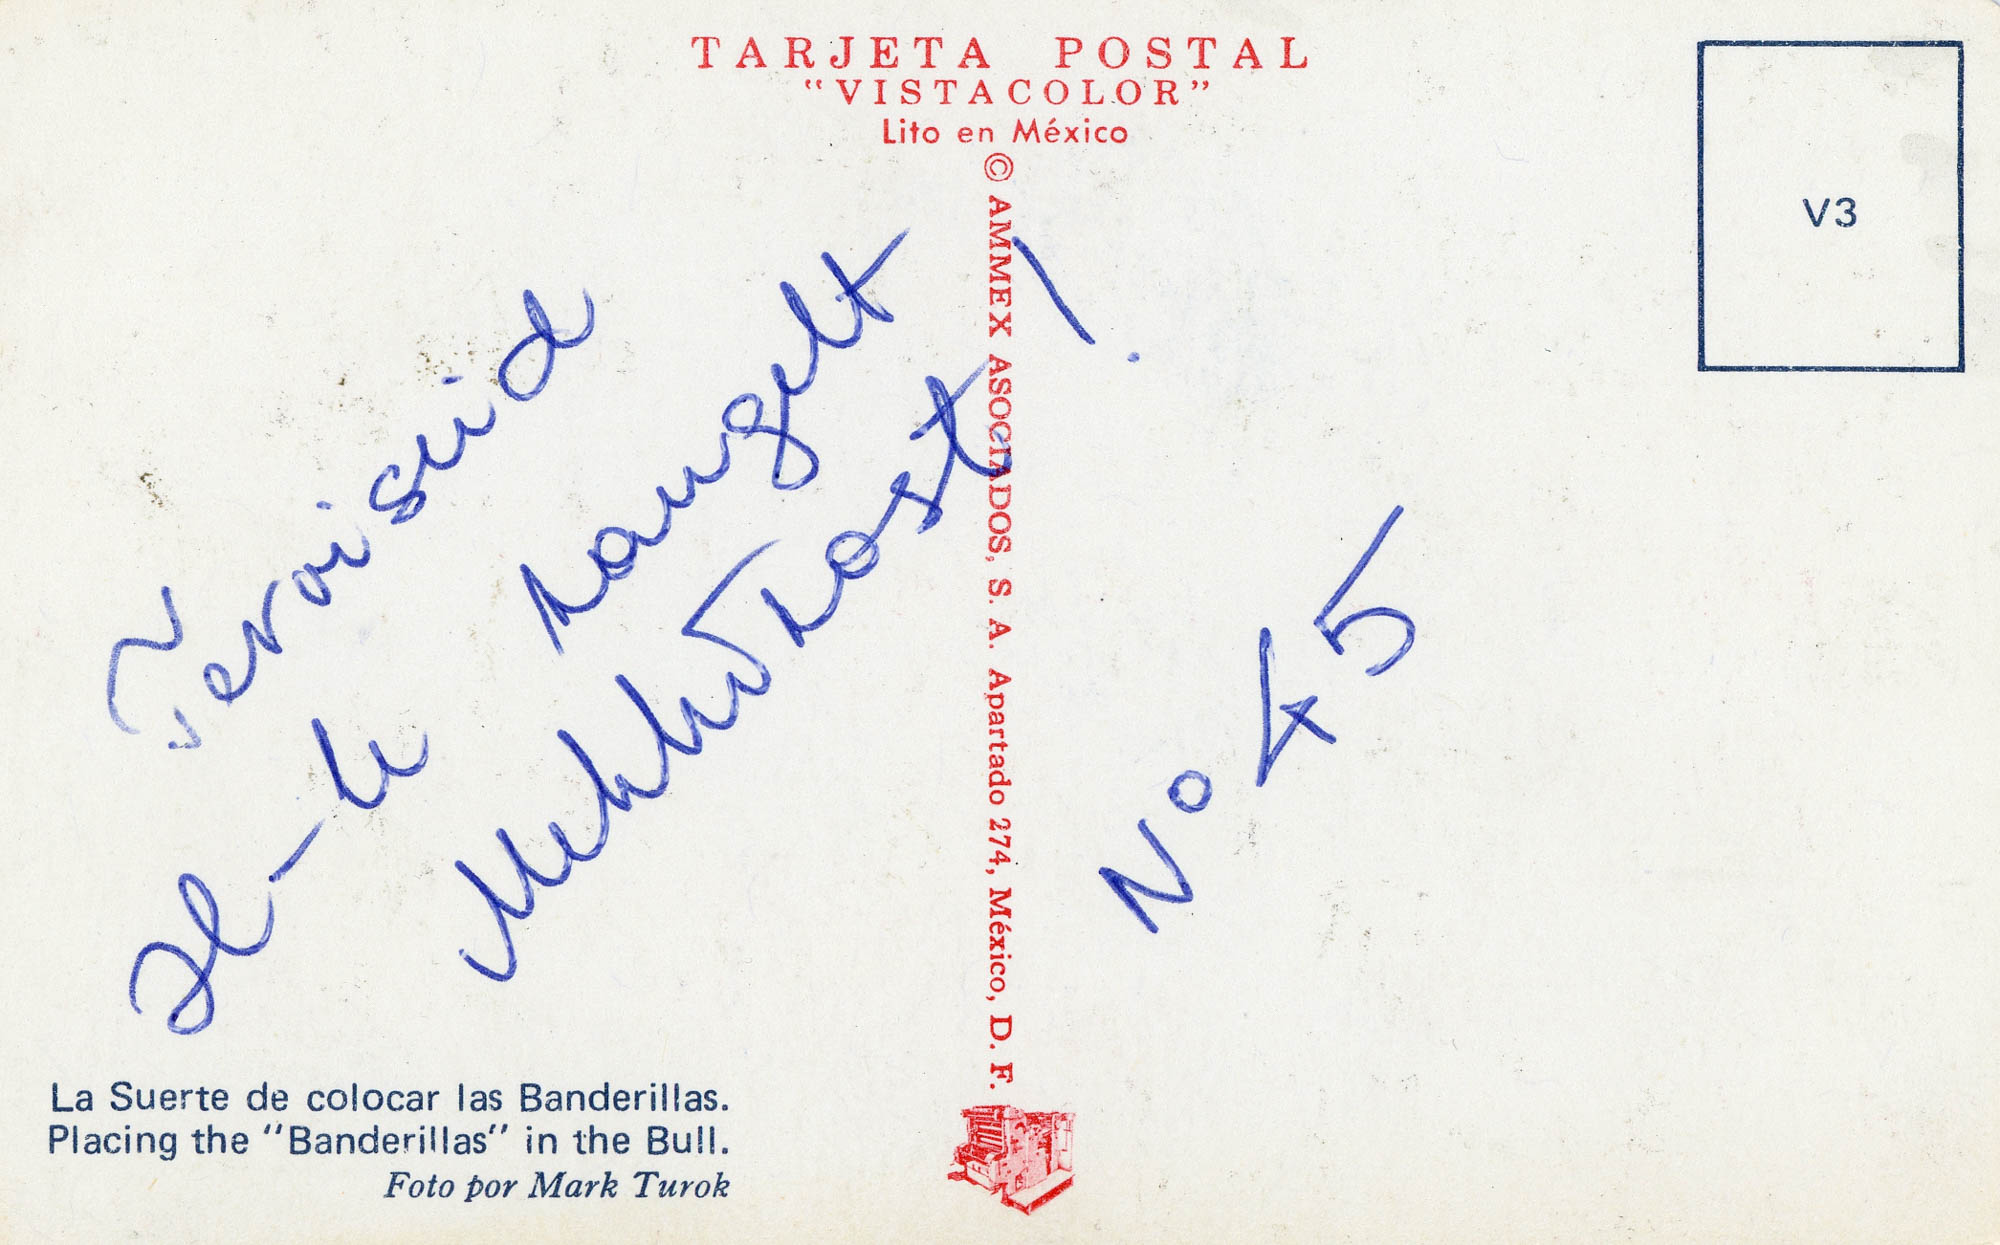 TARJETA POSTAL
"VISTACOLOR"
Lito en México
© AMMEX ASOCIADOS, S. A. Apartado 274, México, D. F.
V3
Tervisid
kaugelt
Mehhikost!
No 45
La Suerte de colocar las Banderillas.
Placing the "Banderillas" in the Bull.
Foto por Mark Turok